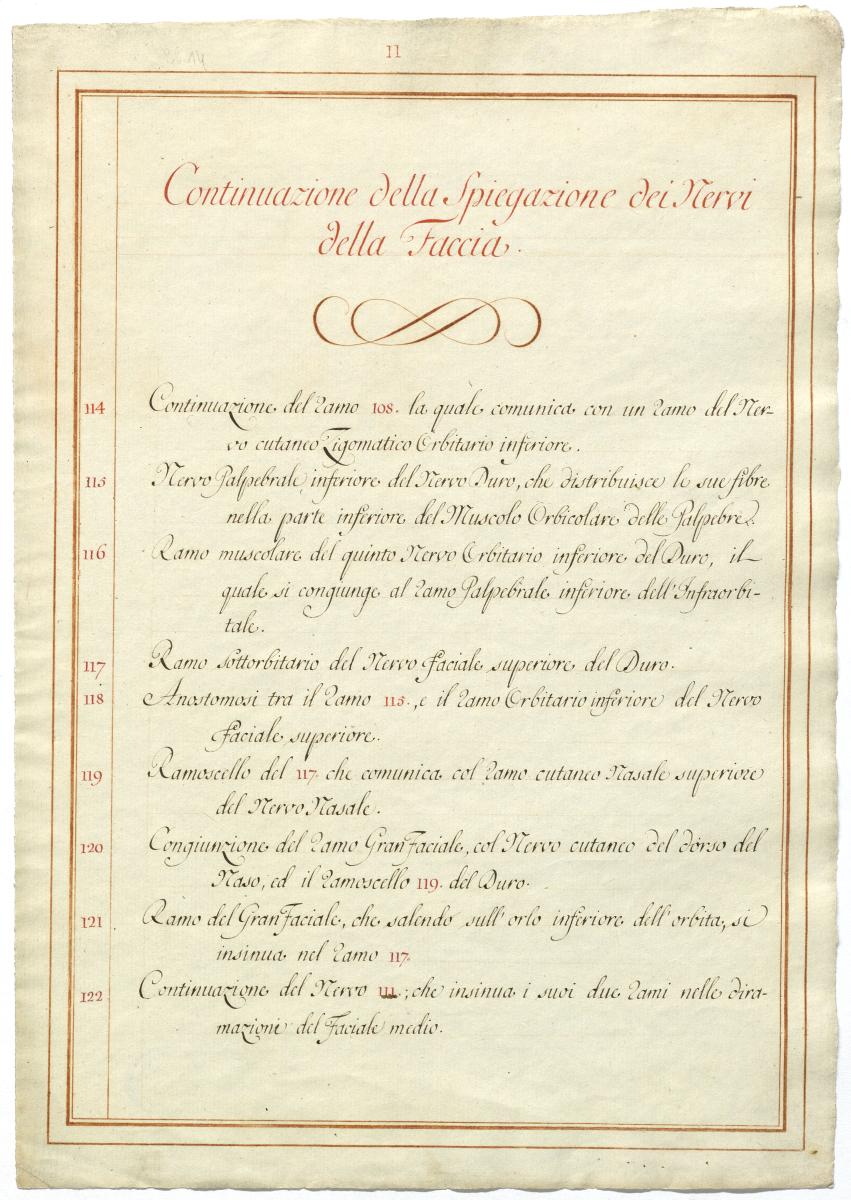 11
Continuazione della Spiegazione dei Nervi
della Faccia.
114 Continuazione del Ramo 108. la quàle comunica con un Ramo del Ner-
vo cutaneo Zigomatico Orbitario inferiore.
115 Nervo Palpebrale inferiore del Nervo Duro, che distribuisce le sue fibre
nella parte inferiore del Muscolo Orbicolare delle Palpebre.
116 Ramo muscolare del quinto Nervo Orbitario inferiore del Duro, il
quale si congiunge al Ramo Palpebrale inferiore dell'Infraorbi-
tale.
117 Ramo Sottorbitario del Nervo Faciale superiore del Duro.
118 Anostomosi tra il Ramo 115., e il Ramo Orbitario inferiore del Nervo
Faciale superiore.
119 Ramoscello del 117. che comunica col Ramo cutaneo Nasale superiore
del Nervo Nasale.
120 Congiunzione del Ramo Gran Faciale, col Nervo cutaneo del dorso del
Naso, ed il Ramoscello 119. del Duro.
121 Ramo del Gran Faciale, che salendo sull'orlo inferiore dell'orbita, si
insinua nel Ramo 117.
122 Continuazione del Nervo 111.; che insinua i suoi due Rami nelle dira-
mazioni del Faciale medio.